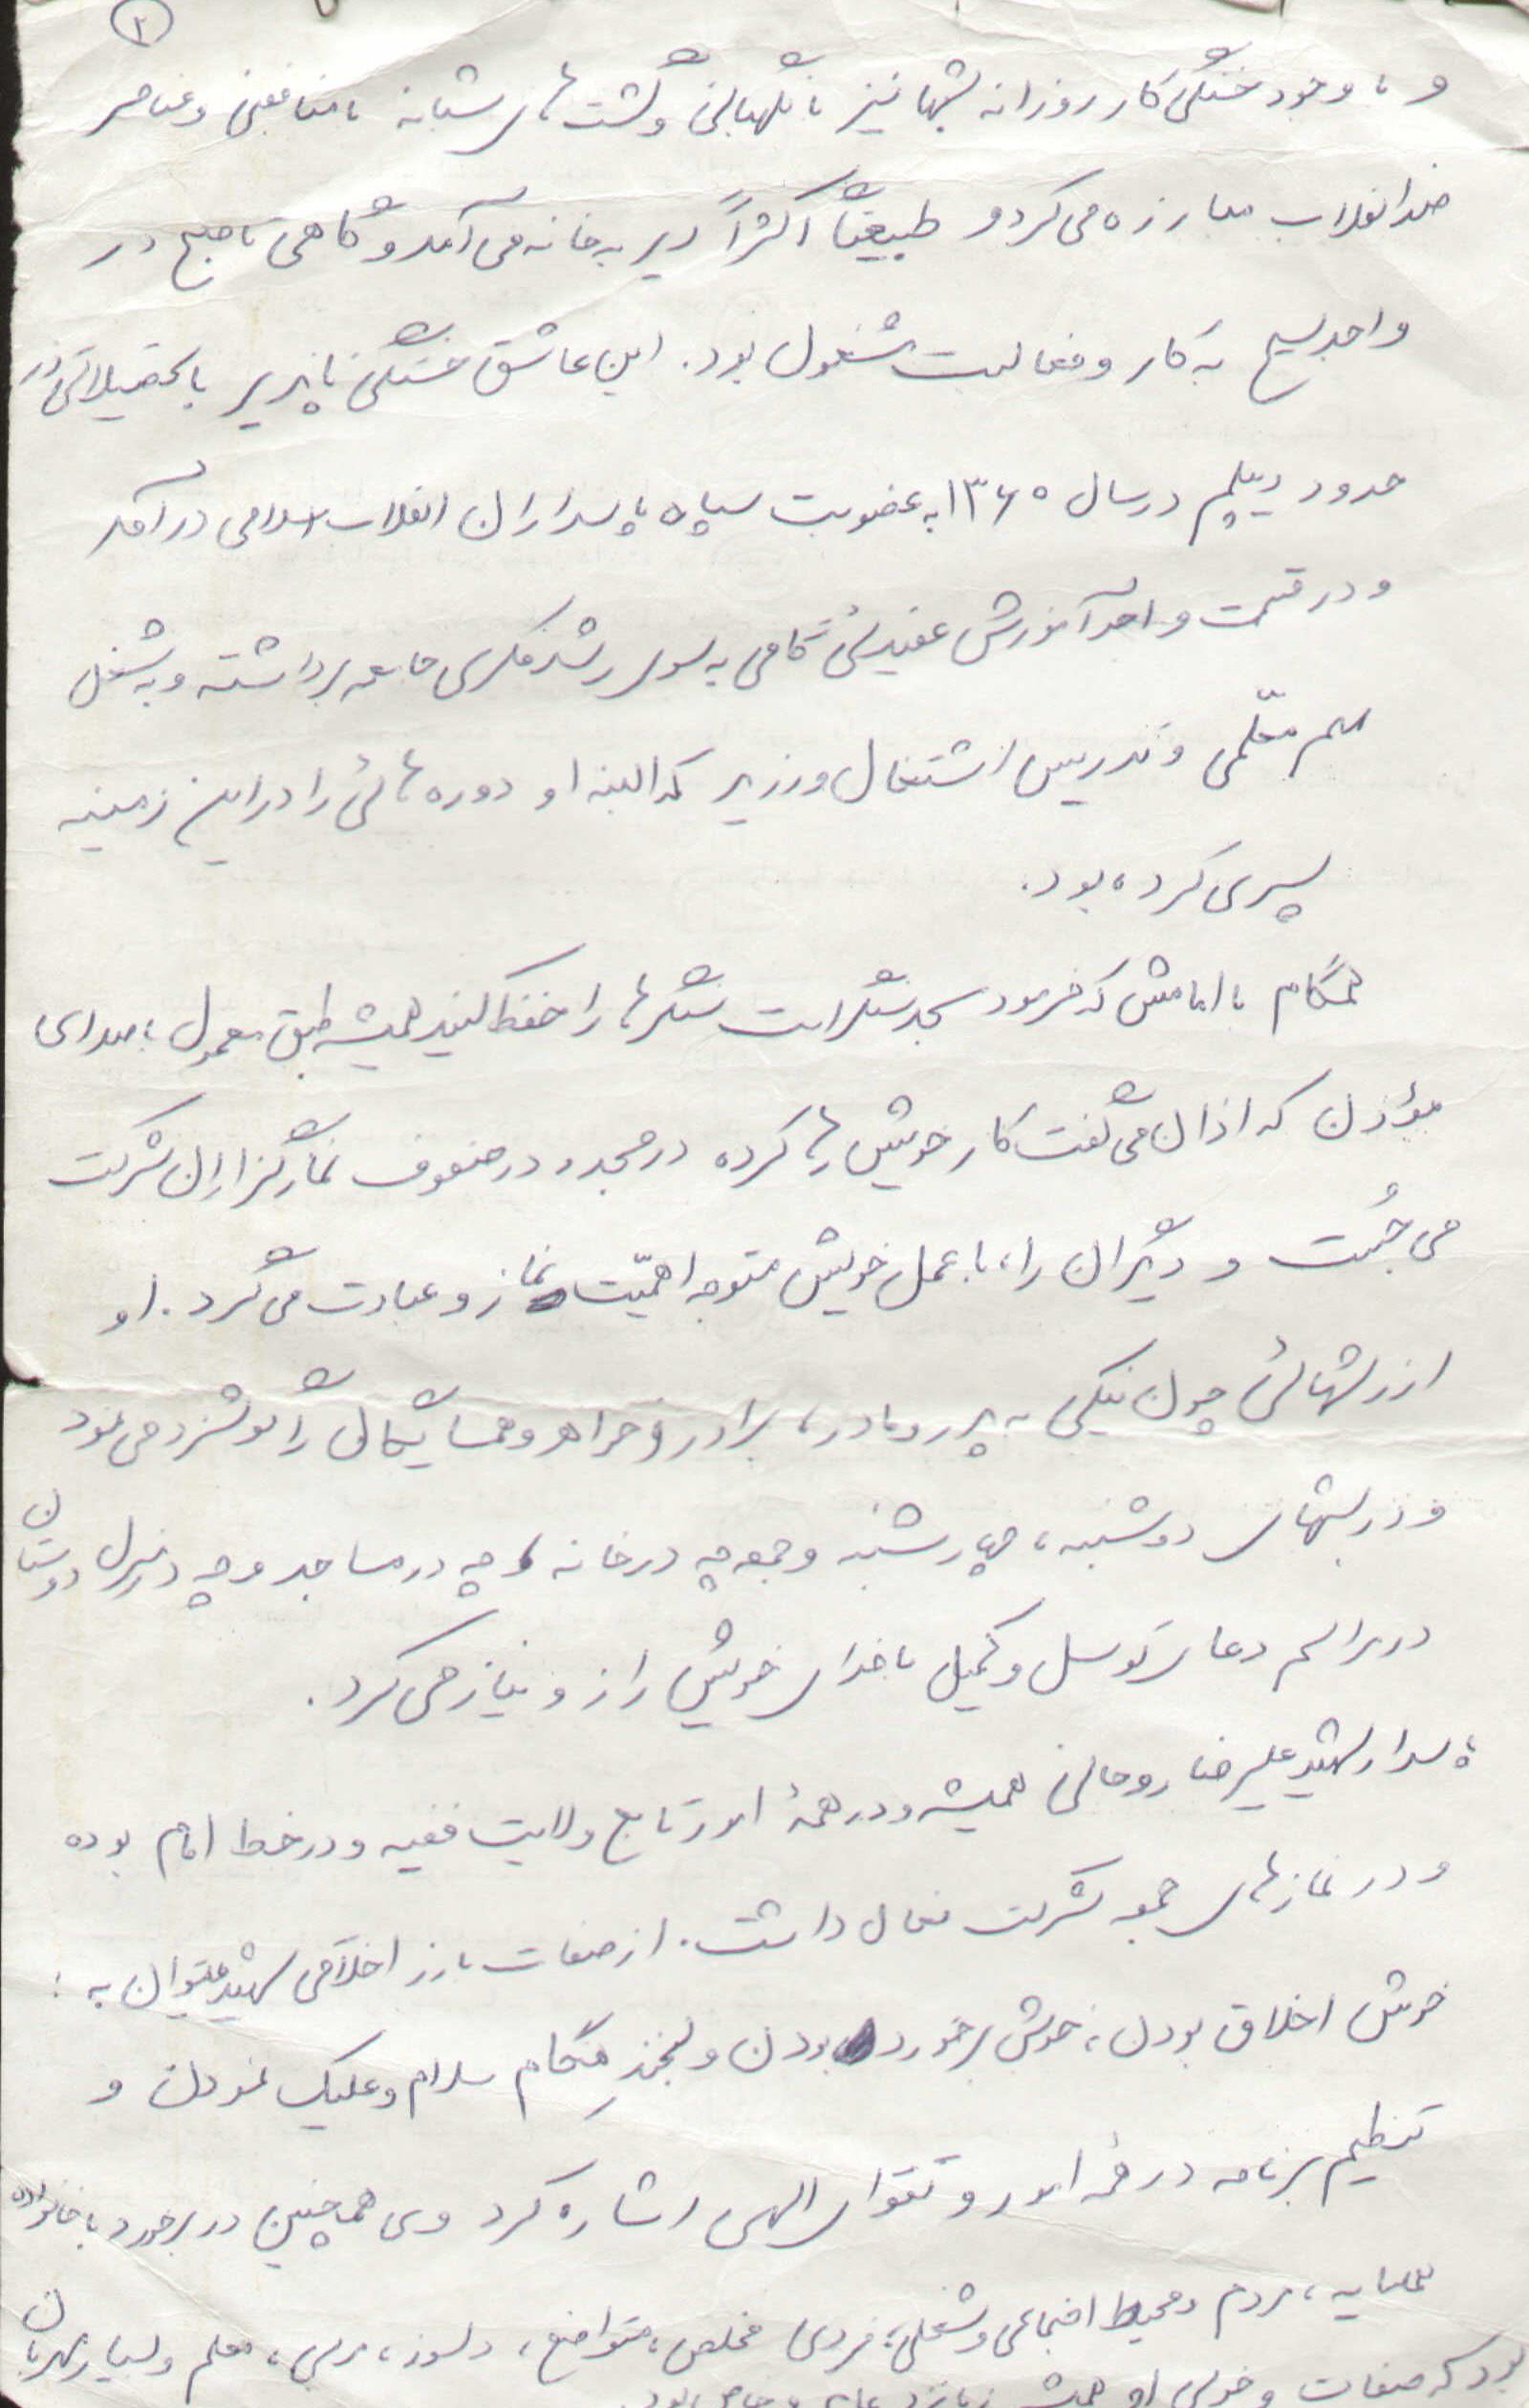 ۲
و با وجود خستگی کار روزانه شبها نیز با نگهبانی و گشت های شبانه با منافقین و عناصر
ضد انقلاب مبارزه می کرد و طبیعتاً اکثراً دیر به خانه می آمد و گاهی تا صبح در
واحد بسیج به کار و فعالیت مشغول بود. این عاشق خستگی ناپذیر با تحصیلاتی در
حدود دیپلم در سال ۱۳۶۰ به عضویت سپاه پاسداران انقلاب اسلامی درآمد
و در قسمت واحد آموزش عقیدتی گامی به سوی رشد فکری جامعه برداشته و به شغل
معلّمی و تدریس اشتغال ورزید که البته او دوره هائی را در این زمینه
سپری کرده بود.
همگام با امامش که فرمود مسجد سنگر است سنگرها را حفظ کنید همیشه طبق معمول با صدای
مؤذن که اذان می گفت کار خویش رها کرده در مسجد و در صفوف نمازگزاران شرکت
می جُست و دیگران را، با عمل خویش متوجه اهمیّت نماز و عبادت می کرد. او
ارزشهائی چون نیکی به پدر و مادر، برادر و خواهر و همسایگان را گوشزد می نمود
و در شبهای دوشنبه، چهارشنبه و جمعه چه در خانه و چه در مساجد و چه در منزل دوستان
در مراسم دعای توسل و کمیل با خدای خویش راز و نیاز می کرد.
پاسدار شهید علیرضا روحانی همیشه و در همهٔ امور تابع ولایت فقیه و در خط امام بوده
و در نمازهای جمعه شرکت فعال داشت. از صفات بارز اخلاقی شهید میتوان به :
خوش اخلاق بودن، خوش برخورد بودن و لبخندِ هنگام سلام و علیک نمودن و
تنظیم برنامه در همه امور و تقوای الهی اشاره کرد وی همچنین در برخورد با خانواده
همسایه، مردم و محیط اجتماعی و شغلی، فردی مخلص، متواضع، دلسوز، مربی، معلم و بسیار مهربان
بود که صفات و خوبی او همیشه زبانزد عام و خاص بود.